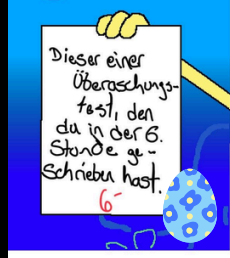 Dieser einer
Überaschungs-
test, den
du in der 6.
Stunde ge-
schrieben hast.
6-